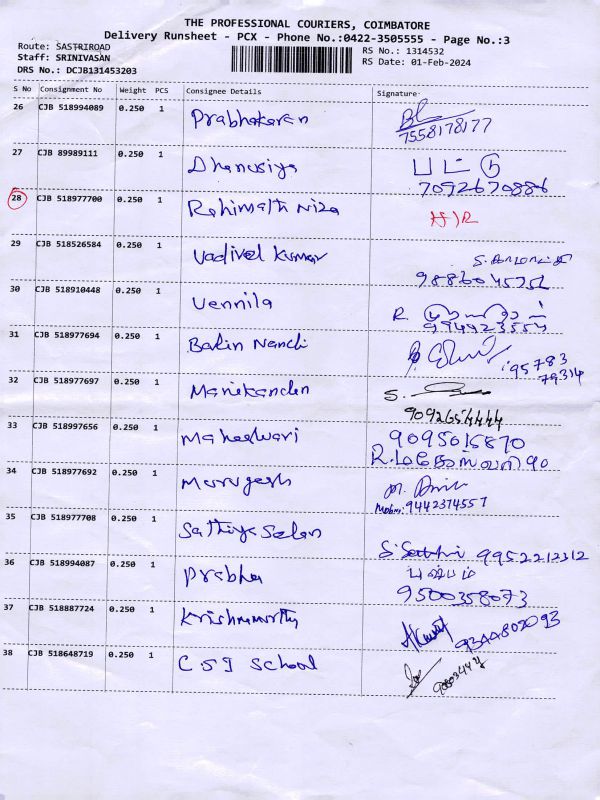 THE PROFESSIONAL COURIERS, COIMBATORE
Delivery Runsheet - PCX - Phone No.:0422-3505555 - Page No.:3
Route: SASTRIROAD
Staff: SRINIVASAN
DRS No.: DCJB131453203
RS No.: 1314532
RS Date: 01-Feb-2024
S No Consignment No Weight PCS Consignee Details Signature
26 CJB 518994089 0.250 1 Prabhakaran
7558178177
27 CJB 89989111 0.250 1 Dhanusiya
7092670886
28 CJB 518977700 0.250 1 Rahimath Niza
29 CJB 518526584 0.250 1 Vadivel Kumar
30 CJB 518910448 0.250 1 Vennila R.
31 CJB 518977694 0.250 1 Nandi
95783
79314
32 CJB 518977697 0.250 1 Manikandan S.
9092654444
33 CJB 518997656 0.250 1 Maheswari 9095015870
R. மகேஸ்வரி
34 CJB 518977692 0.250 1 Murugesh
9442374557
35 CJB 518977708 0.250 1 Sathiya Selan
9952212312
36 CJB 518994087 0.250 1 Prabha
9500358073
37 CJB 518887724 0.250 1 Krishnamorthy
9344802093
38 CJB 518648719 0.250 1 CSI School